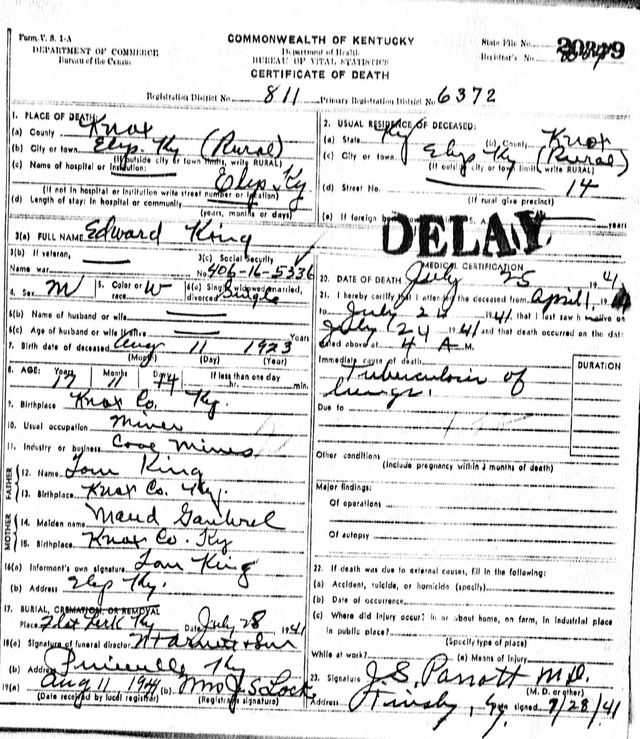 Form V. S. 1-A
DEPARTMENT OF COMMERCE
Bureau of the Census
COMMONWEALTH OF KENTUCKY
Department of Health
BUREAU OF VITAL STATISTICS
CERTIFICATE OF DEATH
State File No. 20349
Registrar's No.
Registration District No. 811 Primary Registration District No. 6372
1. PLACE OF DEATH:
(a) County Knox
(b) City or town Elys Ky (Rural)
(If outside city or town limits, write RURAL)
(c) Name of hospital or institution:
Elys Ky
(If not in hospital or institution write street number or location)
(d) Length of stay: In hospital or community
(years, months or days)
2. USUAL RESIDENCE OF DECEASED:
(a) State Ky (b) County Knox
(c) City or town Elys Ky (Rural)
(If outside city or town limits, write RURAL)
(d) Street No. 14
(If rural give precinct)
(e) If foreign born, years
DELAY
3(a) FULL NAME Edward King
3(b) If veteran,
Name war
3(c) Social Security
No 406-16-5336
4. Sex M 5. Color or race W 6(a) Single, widowed, married, divorced Single
6(b) Name of husband or wife
6(c) Age of husband or wife if alive Years
7. Birth date of deceased Aug 11 1923
(Month) (Day) (Year)
8. AGE: Years Months Days If less than one day
17 11 14 hr. min.
9. Birthplace Knox Co. Ky.
10. Usual occupation Miner
11. Industry or business Coal Mines
FATHER
12. Name Tom King
13. Birthplace Knox Co. Ky.
MOTHER
14. Maiden name Maud
15. Birthplace Knox Co. Ky
16(a) Informant's own signature Tom King
(b) Address Elys Ky.
17. BURIAL, CREMATION, OR REMOVAL
Place Flat Lick Ky Date July 28 1941
18(a) Signature of funeral director
(b) Address Pineville Ky
19(a) Aug 11 1941 (b) Mrs J. S. Lock
(Date received by local registrar) (Registrar's signature)
MEDICAL CERTIFICATION
20. DATE OF DEATH July 25 1941
21. I hereby certify that I attended the deceased from April 1, 19
to July 24 1941 that I last saw h alive on
July 24 1941 and that death occurred on the date
stated above at 4 A M.
Immediate cause of death
Tuberculosis of
lungs.
DURATION
Due to
Other conditions
(Include pregnancy within 3 months of death)
Major findings:
Of operations
Of autopsy
22. If death was due to external causes, fill in the following:
(a) Accident, suicide, or homicide (specify)
(b) Date of occurrence
(c) Where did injury occur? in or about home, on farm, in industrial place
in public place?
(Specify type of place)
While at work? (e) Means of Injury
23. Signature J. S. Parrott M.D.
(M. D. or other)
Address Tinsley, Ky. Date signed 7/28/41